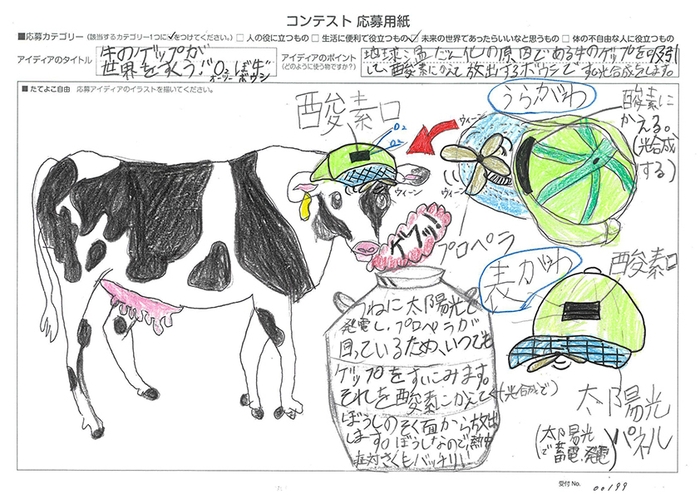 コンテスト 応募用紙
■応募カテゴリー（該当するカテゴリー1つに✓をつけてください。）□人の役に立つもの □生活に便利で役立つもの ☑未来の世界であったらいいなと思うもの □体の不自由な人に役立つもの
アイディアのタイトル
牛のゲップが
世界をすくう！O₂ぼ牛
オーツーボウシ
アイディアのポイント
（どのように使う物ですか？）
地球温だん化の原因である牛のゲップを吸引
し、酸素にかえて放出するボウシです。光合成えします。
■たてよこ自由 応募アイディアのイラストを描いてください。
酸素口
O₂
O₂
ウィーン
ゲップ!
プロペラ
うらがわ
ウィーン
ウィーン
酸素に
かえる。
(光合成
する)
表がわ
酸素口
太陽光
パネル
(太陽光
で蓄電、発電)
つねに太陽光で
発電し、プロペラが
回っているため、いつでも
ゲップをすいこみます。
それを酸素にかえて(光合成で)
ぼうしのそく面から放出
します。ぼうしなので熱中
症対さくもバッチリ!
受付No. 00199